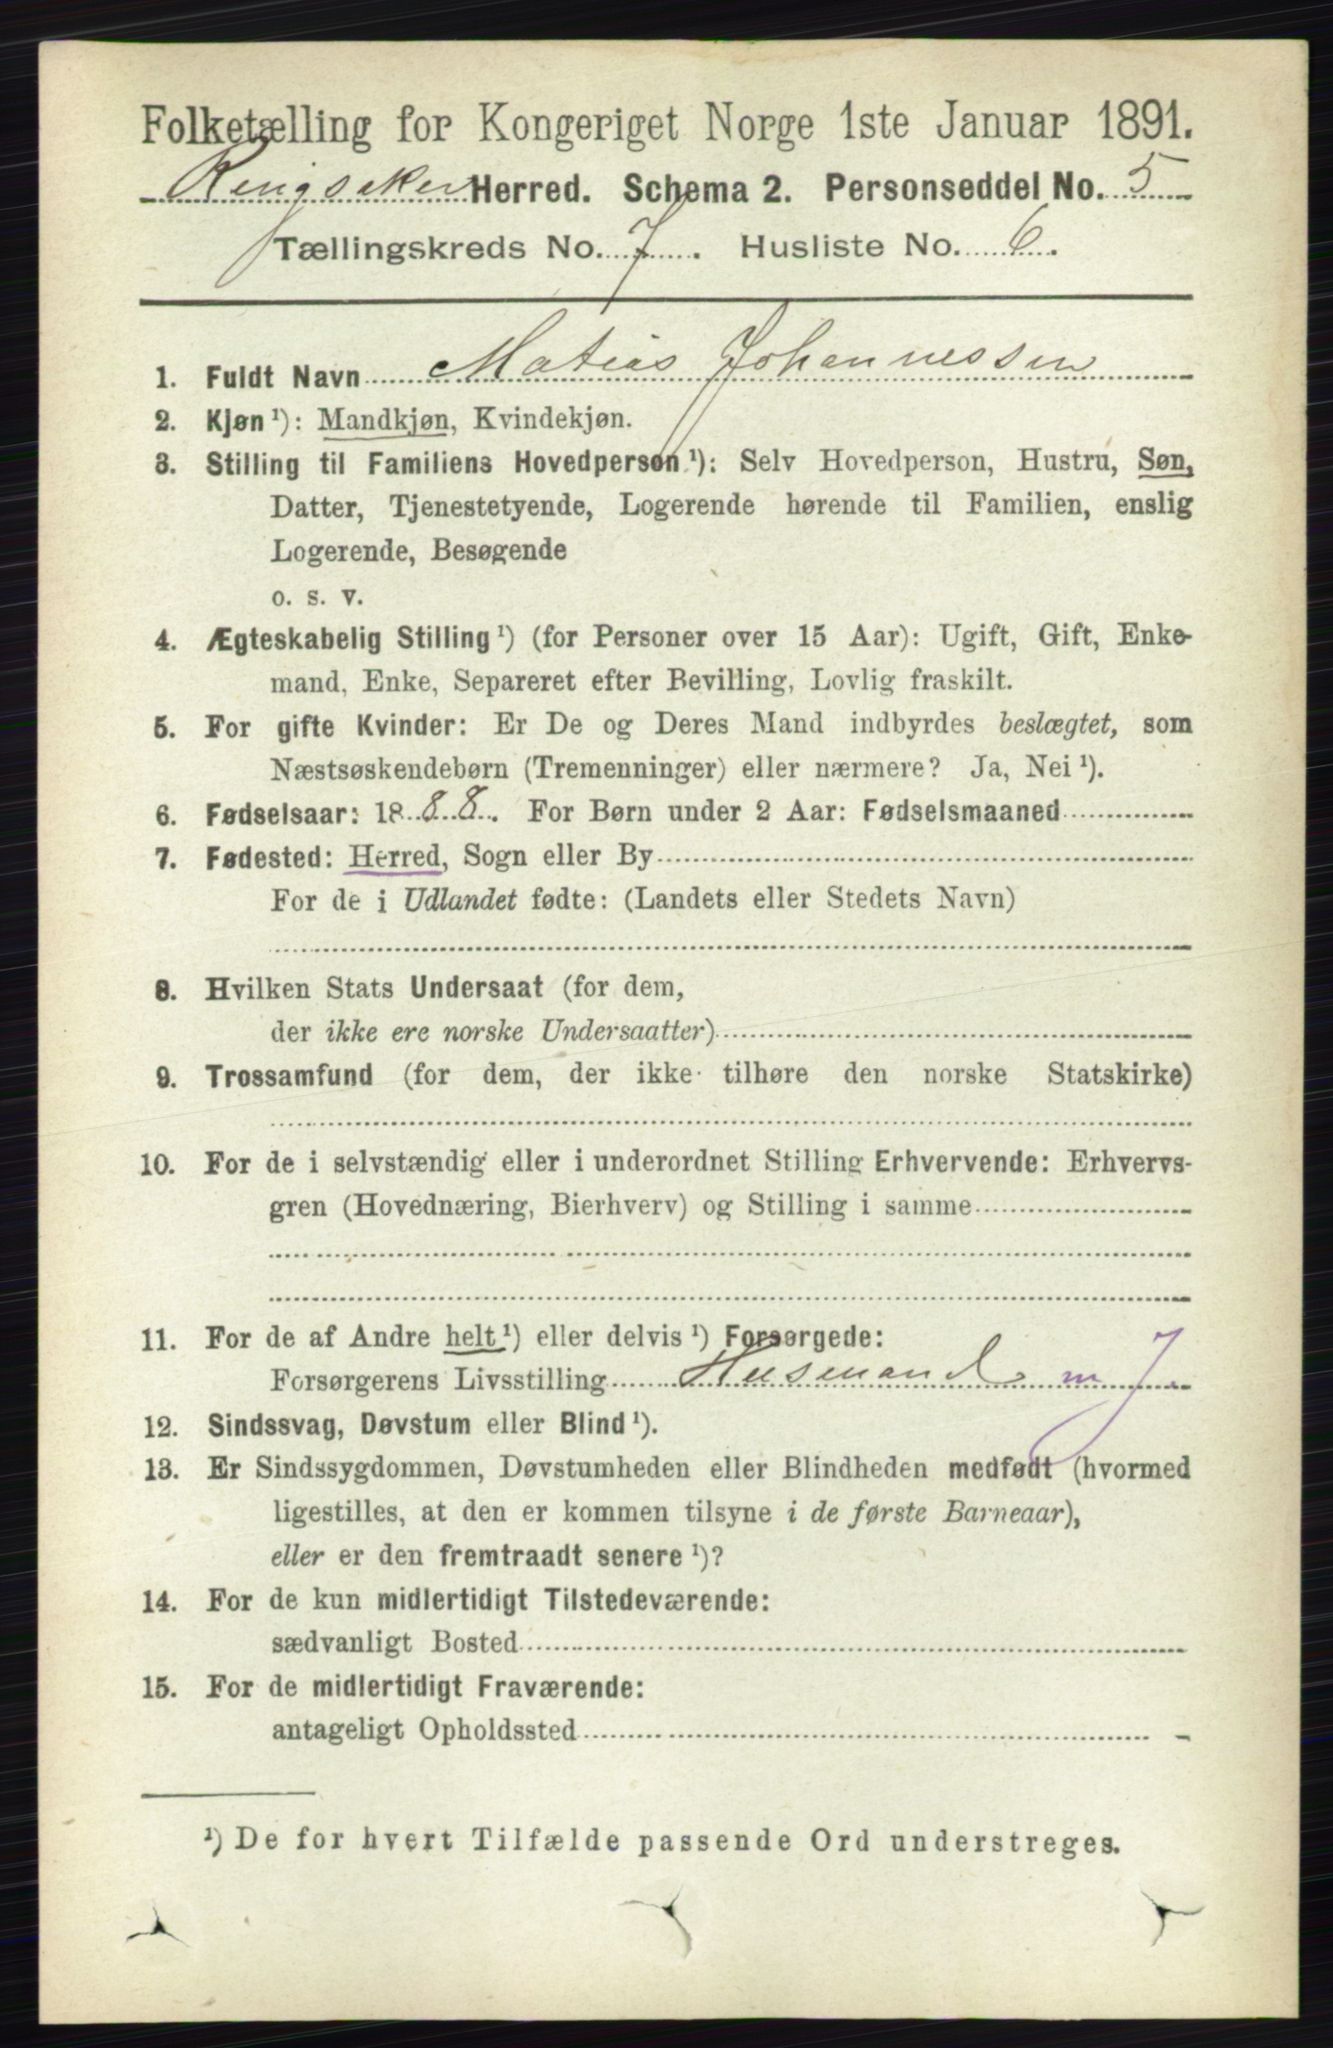 Folketælling for Kongeriget Norge 1ste Januar 1891.
Ringsaker Herred. Schema 2. Personseddel No. 5
Tællingskreds No. 7. Husliste No. 6.
1. Fuldt Navn Matias Johannessen
2. Kjøn ¹): Mandkjøn, Kvindekjøn.
3. Stilling til Familiens Hovedperson ¹): Selv Hovedperson, Hustru, Søn,
Datter, Tjenestetyende, Logerende hørende til Familien, enslig
Logerende, Besøgende
o. s. v.
4. Ægteskabelig Stilling ¹) (for Personer over 15 Aar): Ugift, Gift, Enke-
mand, Enke, Separeret efter Bevilling, Lovlig fraskilt.
5. For gifte Kvinder: Er De og Deres Mand indbyrdes beslægtet, som
Næstsøskendebørn (Tremenninger) eller nærmere? Ja, Nei ¹).
6. Fødselsaar: 1888. For Børn under 2 Aar: Fødselsmaaned
7. Fødested: Herred, Sogn eller By
For de i Udlandet fødte: (Landets eller Stedets Navn)
8. Hvilken Stats Undersaat (for dem,
der ikke ere norske Undersaatter)
9. Trossamfund (for dem, der ikke tilhøre den norske Statskirke)
10. For de i selvstændig eller i underordnet Stilling Erhvervende: Erhvervs-
gren (Hovednæring, Bierhverv) og Stilling i samme
11. For de af Andre helt ¹) eller delvis ¹) Forsørgede:
Forsørgerens Livsstilling Husmand m J.
12. Sindssvag, Døvstum eller Blind ¹).
13. Er Sindssygdommen, Døvstumheden eller Blindheden medfødt (hvormed
ligestilles, at den er kommen tilsyne i de første Barneaar),
eller er den fremtraadt senere ¹)?
14. For de kun midlertidigt Tilstedeværende:
sædvanligt Bosted
15. For de midlertidigt Fraværende:
antageligt Opholdssted
¹) De for hvert Tilfælde passende Ord understreges.